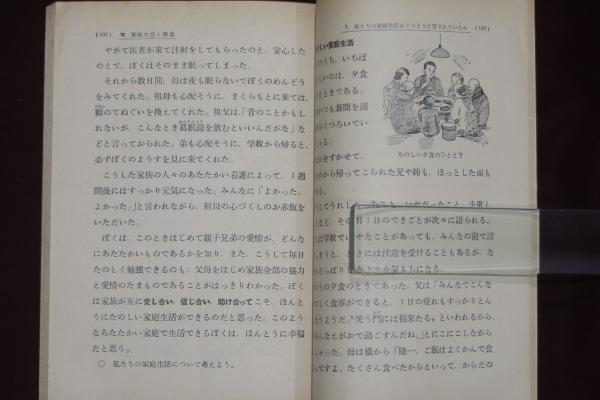 (102) Ⅶ 家庭生活と職業
やがて医者が来て注射をしてもらったのと、安心し
たのとで、ぼくはそのまま眠ってしまった。
それから数日間、母は夜も眠らないでぼくのめんどう
をみてくれた。祖母も心配そうに、まくらもとに来ては、
額のてぬぐいを換えてくれた。祖父は、「昔のことかもし
れないが、こんなとき葛根湯を飲むといいんだがな」な
どと言っておられた。弟も心配そうに、学校から帰ると、
必ずぼくのようすを見に来てくれた。
こうした家族の人々のあたたかい看護によって、1週
間後にはすっかり元気になった。みんなに「よかった。
よかった。」と言われながら、祖母の心づくしのお赤飯を
いただいた。
ぼくは、このときはじめて親子兄弟の愛情が、どんな
にあたたかいものであるかを知り、また、こうして毎日
たのしく勉強できるのも、父母をはじめ家族全部の協力
と愛情のたまものであることがはっきりわかった。ぼく
は家族が互に愛し合い、信じ合い、助け合ってこそ、ほんと
うにたのしい家庭生活ができるのだと思った。このよう
なあたたかい家庭で生活できるぼくは、ほんとうに幸福
だと思う。
○ 私たちの家庭生活について考えよう。
1. 私たちの家庭生活はどのように営まれているか (103)
のしい家庭生活
のうち、いちば
しいのは、夕食
とときである。
いつも新聞を読
らくつろいでい
しゃる。
とかをすかせて、
たのしい夕食のひととき
のから帰ってこられた兄や姉も、ほっとした面も
ある。
など、その日1日のできごとが次々に語られる。
は学校でいやなことがあっても、みんなの前で話
しまうと、ときには注意を受けることもあるが、な
さっぱりしたような気もちになる。
の夕食のときであった。父は「みんなでこんな
して食事ができると、1日の疲れもすっかりとん
まうようだ。"笑う門には福来たる。といわれるから、
みんなえがおで過ごすんだね。」とにこにこしながら
しゃった。母は横から「隆一、ご飯はよくかんで食
んですよ。たくさん食べたからといって、からだの